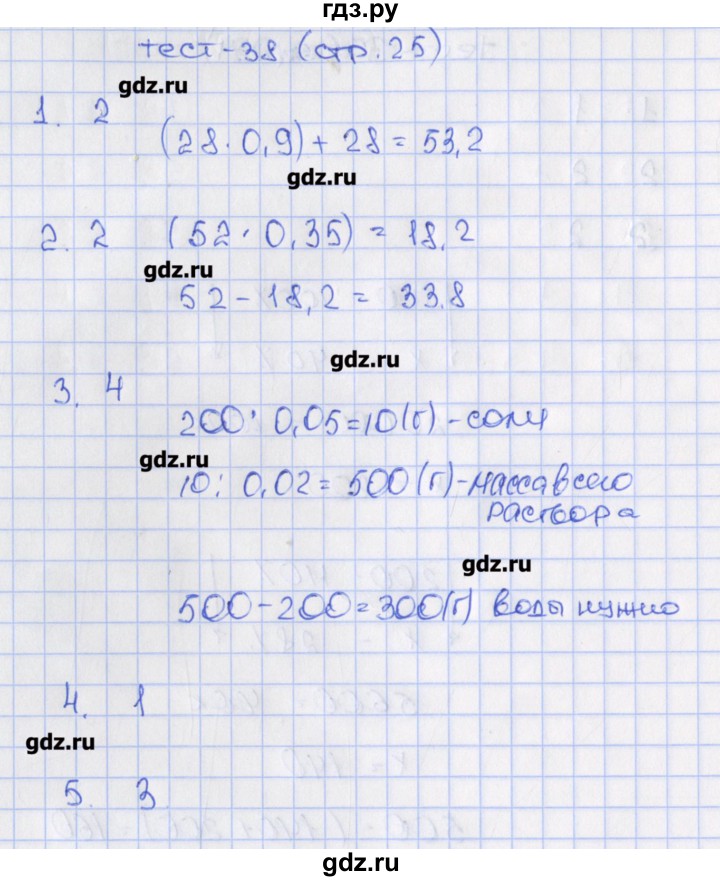 гдз.ру
тест-38 (стр. 25)
gdz.ru
1. 2
(28 · 0,9) + 28 = 53,2
gdz.ru
2. 2 (52 · 0,35) = 18,2
gdz.ru
52 - 18,2 = 33.8
gdz.ru
3. 4
200 · 0,05 = 10 (г) - соли
gdz.ru
10 : 0,02 = 500 (г) - масса всего
раствора
gdz.ru
500 - 200 = 300 (г) воды нужно
4. 1
gdz.ru
5. 3
gdz.ru